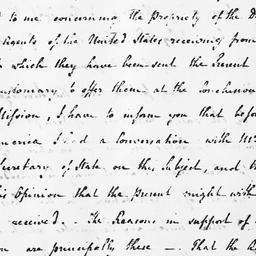 to me concerning the Propriety of the D
of the United States receiving from
which they have been sent the Present
customary to offer them at the Conclusion
Mission, I have to inform you that before
America I had a Conversation with Mr
Secretary of State on this Subject, and
is Opinion that the present might with
received. - The Reasons in support of
on are principally these —. That the